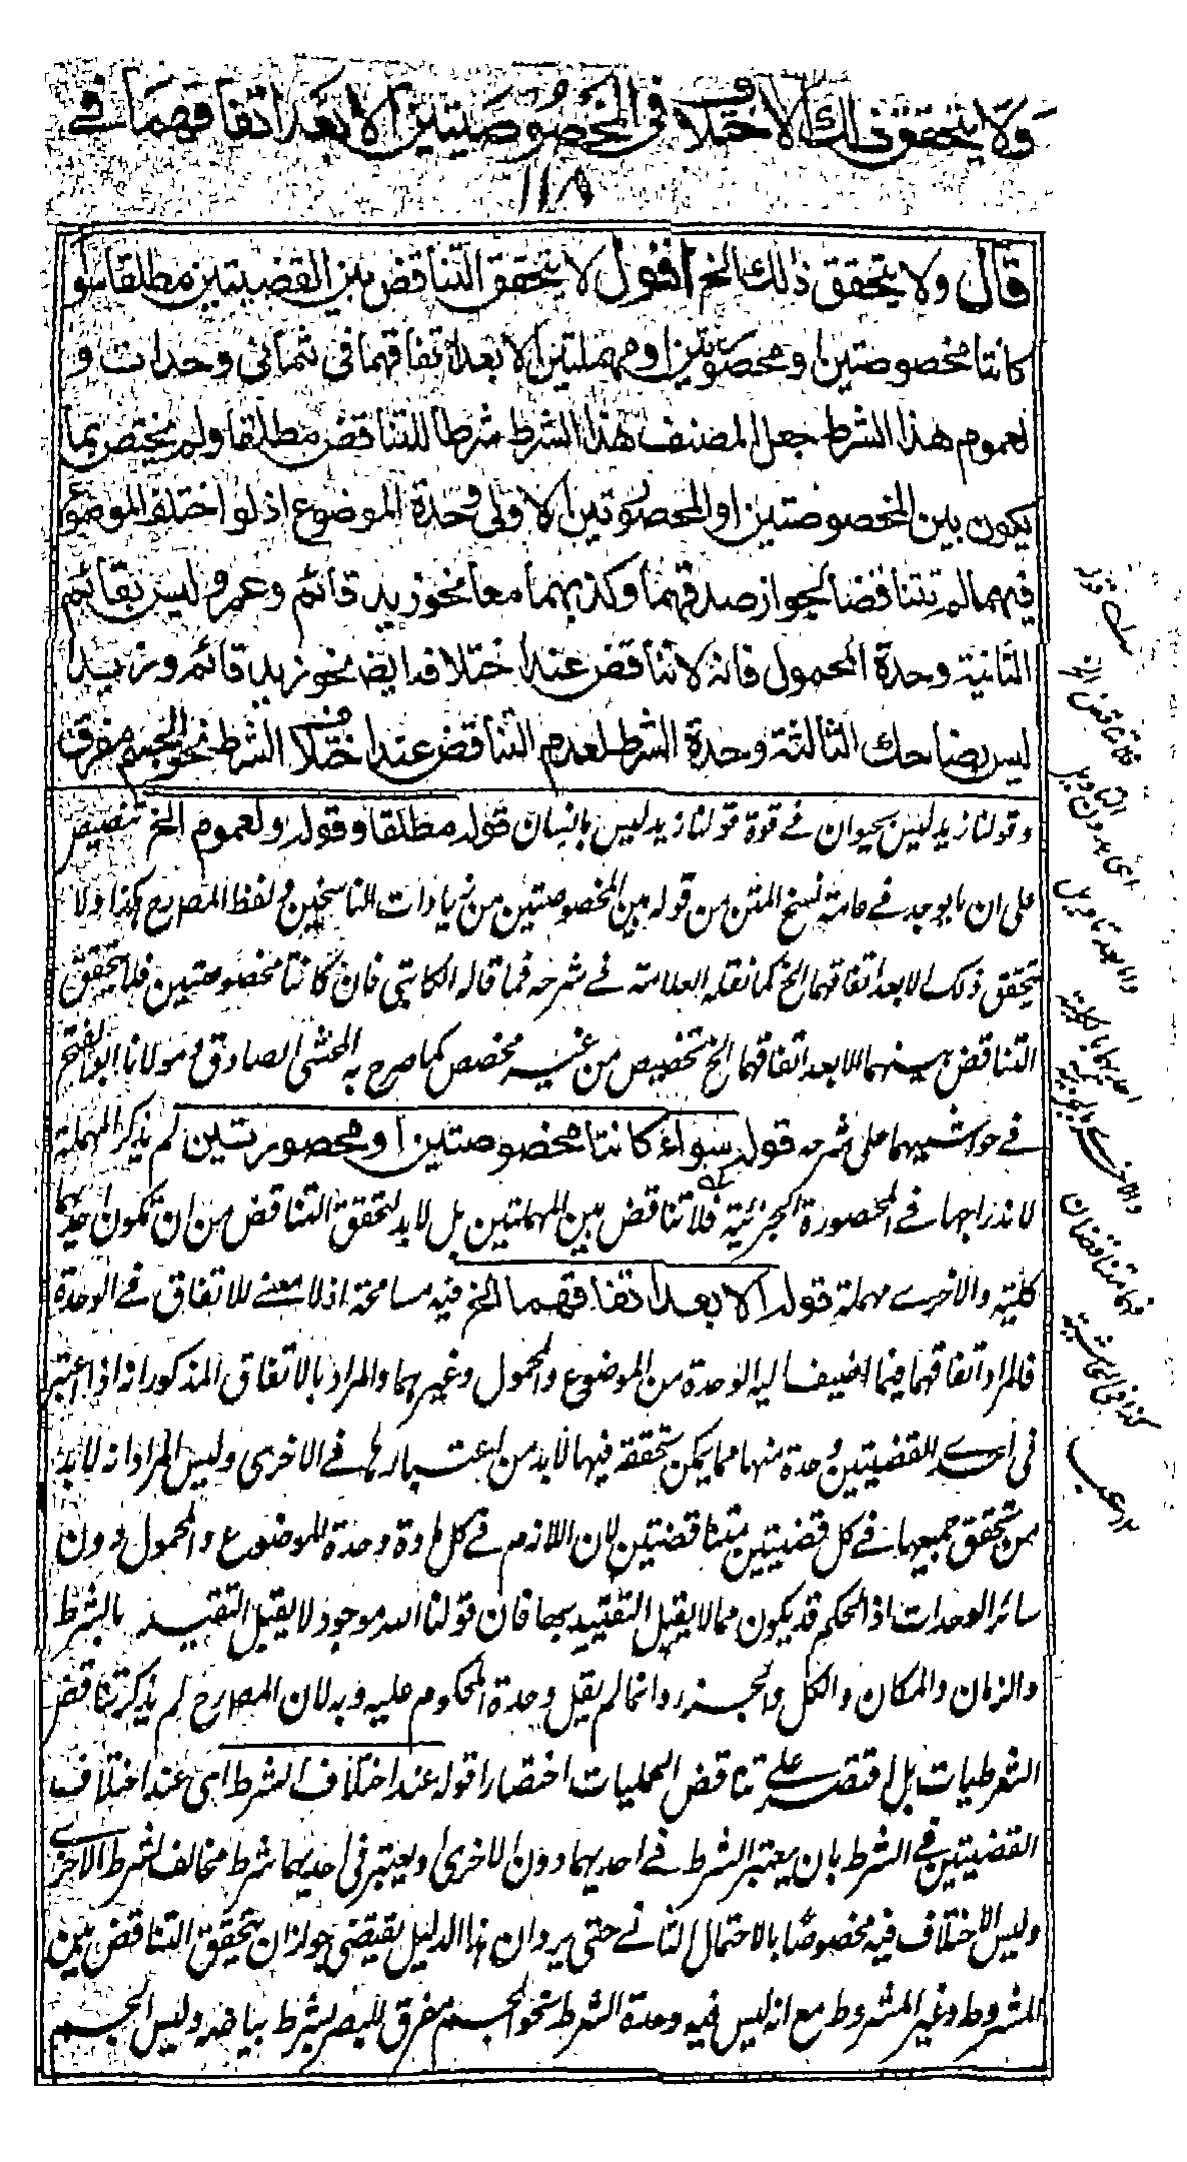 ولا يتحقق ذلك الاختلاف فى المخصوصتين الا بعد اتفاقهما فے
١١٨
قال ولا يتحقق ذلك الخ اقول لا يتحقق التناقض بين القضيتين مطلقا سواء
كانتا مخصوصتين او محصورتين او مهملتين الا بعد اتفاقهما فى ثمانى وحدات و
لعموم هذا الشرط جعل المصنف هذا الشرط شرطا للتناقض مطلقا ولم يختص بما
يكون بين المخصوصتين او المحصورتين الاولى وحدة الموضوع اذ لو اختلف الموضوع
فيهما لم تتناقضا لجواز صدقهما وكذبهما معا نحو زيد قائم وعمرو ليس بقائم
الثانية وحدة المحمول فانه لا تناقض عند اختلافه ايض نحو زيد قائم وزيد
ليس بضاحك الثالثة وحدة الشرط لعدم التناقض عند اختلاف الشرط نحو الجسم مفرق
وقولنا زيد ليس بحيوان فے قوة قولنا زيد ليس بانسان قوله مطلقا وقوله ولعموم الخ تنصيص
على ان ما يوجد فے عامة نسخ المتن من قوله بين المخصوصتين من زيادات الناسخين ولفظ المصرح هكذا ولا
يتحقق ذلك الا بعد اتفاقهما الخ كما نقله العلامة فے شرحه فما قاله الكاتبى فان كانتا مخصوصتين فلا يتحقق
التناقض بينهما الا بعد اتفاقهما الخ تخصيص من غير مخصص كما صرح به المحشى الصادق ومولانا ابو الفتح
فے حواشيهما على شرحه قوله سواء كانتا مخصوصتين او محصورتين لم يذكر المهملة
لاندراجها فے المحصورة الجزئية فلا تناقض بين المهملتين بل لا بد لتحقق التناقض من ان تكون احديهما
كلية والاخرے مهملة قوله الا بعد اتفاقهما الخ فيه مسامحة اذ لا معنے للاتفاق فے الوحدة
فالمراد اتفاقهما فيما اضيف اليه الوحدة من الموضوع والمحمول وغيرهما والمراد بالاتفاق المذكور انه اذا اعتبر
فى احدے القضيتين وحدة منها مما يمكن تحققه فيهما لا بد من اعتبارها فے الاخرى وليس المراد انه لا بد
من تحقق جميعها فے كل قضيتين متناقضتين لان اللازم فے كل مادة وحدة الموضوع والمحمول دون
سائر الوحدات اذ الحكم قد يكون مما لا يقبل التقييد بها فان قولنا الله موجود لا يقبل التقييد بالشرط
والزمان والمكان والكل والجزء وانما لم يقل وحدة المحكوم عليه وبه لان المصرح لم يذكر تناقض
الشرطيات بل اقتصر علے تناقض الحمليات اختصارا قوله عند اختلاف الشرط اى عند اختلاف
القضيتين فے الشرط بان يعتبر الشرط فے احديهما دون الاخرى او يعتبر فى احديهما شرط مخالف لشرط الاخرے
وليس الاختلاف فيه مخصوصا بالاحتمال الثانے حتى يرد ان هذا الدليل يقتضى جواز ان يتحقق التناقض بين
المشروط وغير المشروط مع انه ليس فيه وحدة الشرط نحو الجسم مفرق للبصر بشرط بياضه وليس الجسم
فلا تناقض الخ
اى بدون
والا بعد تاويل
احديهما بالكلية
والاخرے بالجزئية
فهما متناقضتان
كذا فى الحاشية